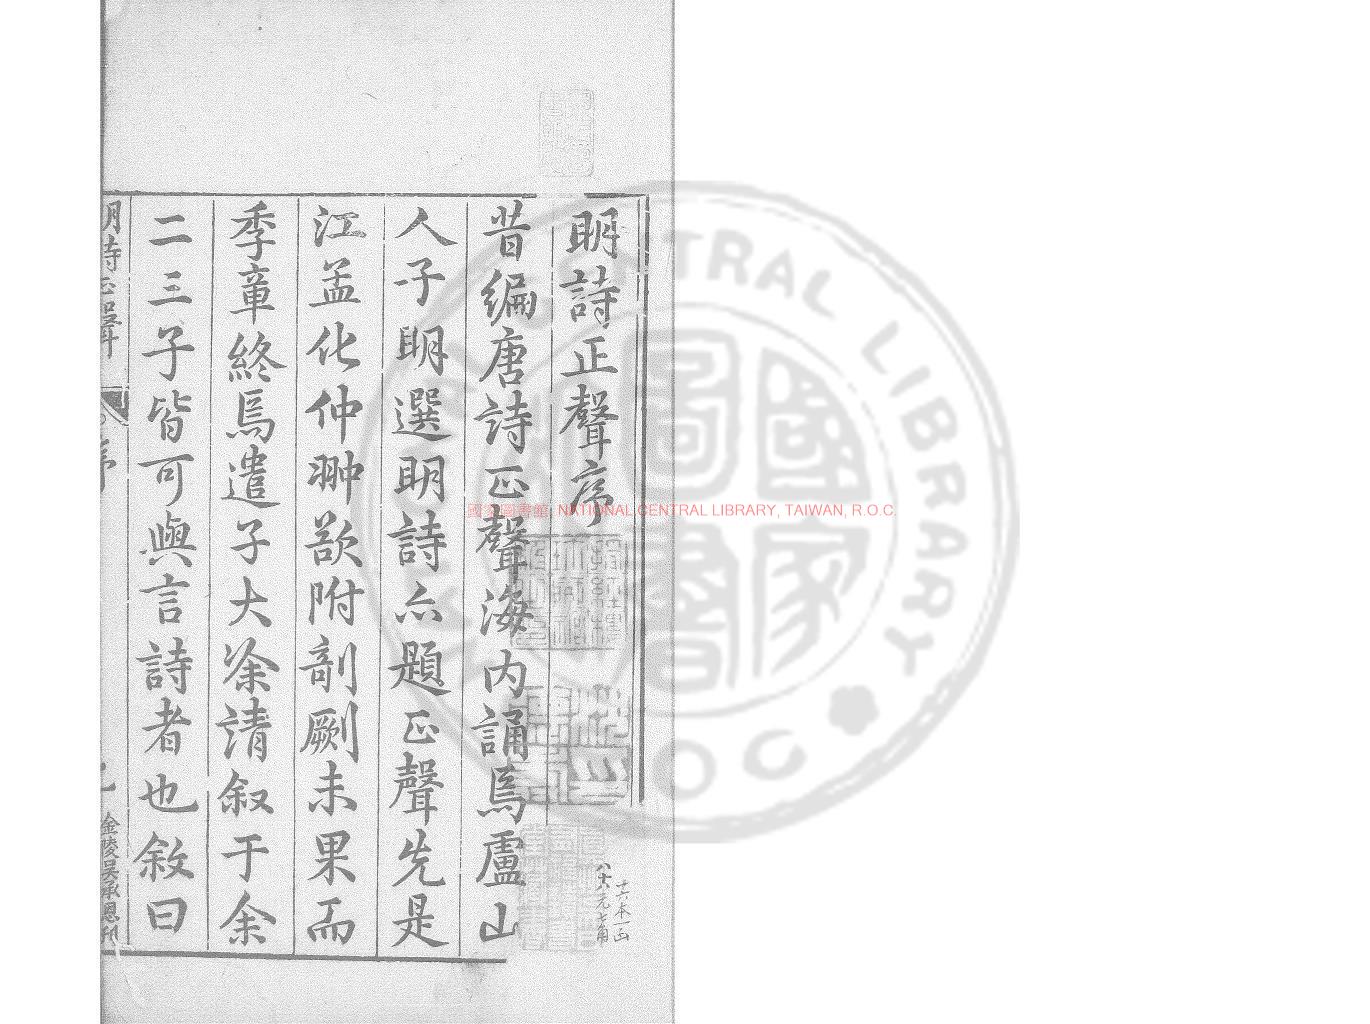 明詩正聲序
昔編唐詩正聲海内誦焉盧山
人子明選明詩亦題正聲先是
江孟化仲翀欲附剞劂未果而
季章終焉遣子大凎請叙于余
二三子皆可與言詩者也敘曰
明詩正聲
序
金陵吴承恩刊
十六本一函
元七角
國家圖書館, NATIONAL CENTRAL LIBRARY, TAIWAN, R.O.C.
CENTRAL LIBRARY
R.O.C
國家圖書